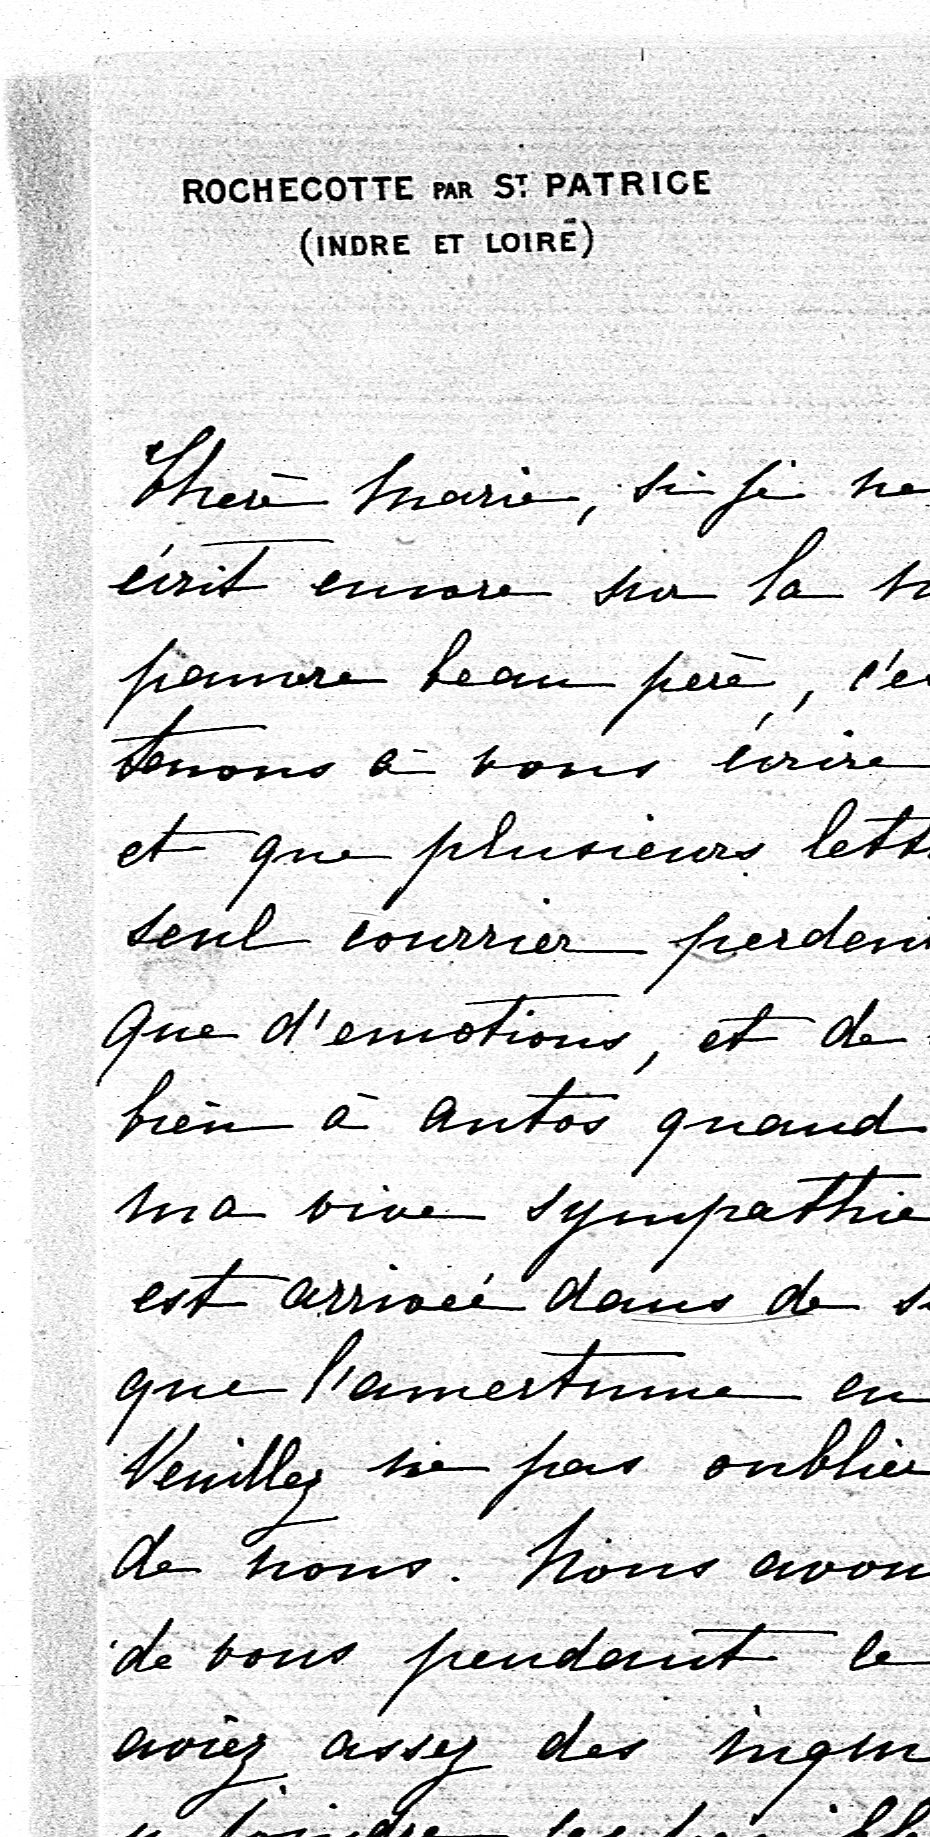 ROCHECOTTE PAR ST. PATRICE
(INDRE ET LOIRE)
Chère Marie, si je ne
écrit encore sur la
pauvre beau père, c'es
tenons à vous écrire
et que plusieurs lett
seul courrier perdent
que d'emotions, et de
bien à Antos quand
ma vive sympathie
est arrivée dans de s
que l'amertume en
Veuillez ne pas oublier
de nous. Nous avon
de vous pendant le
aviez assez des inqui